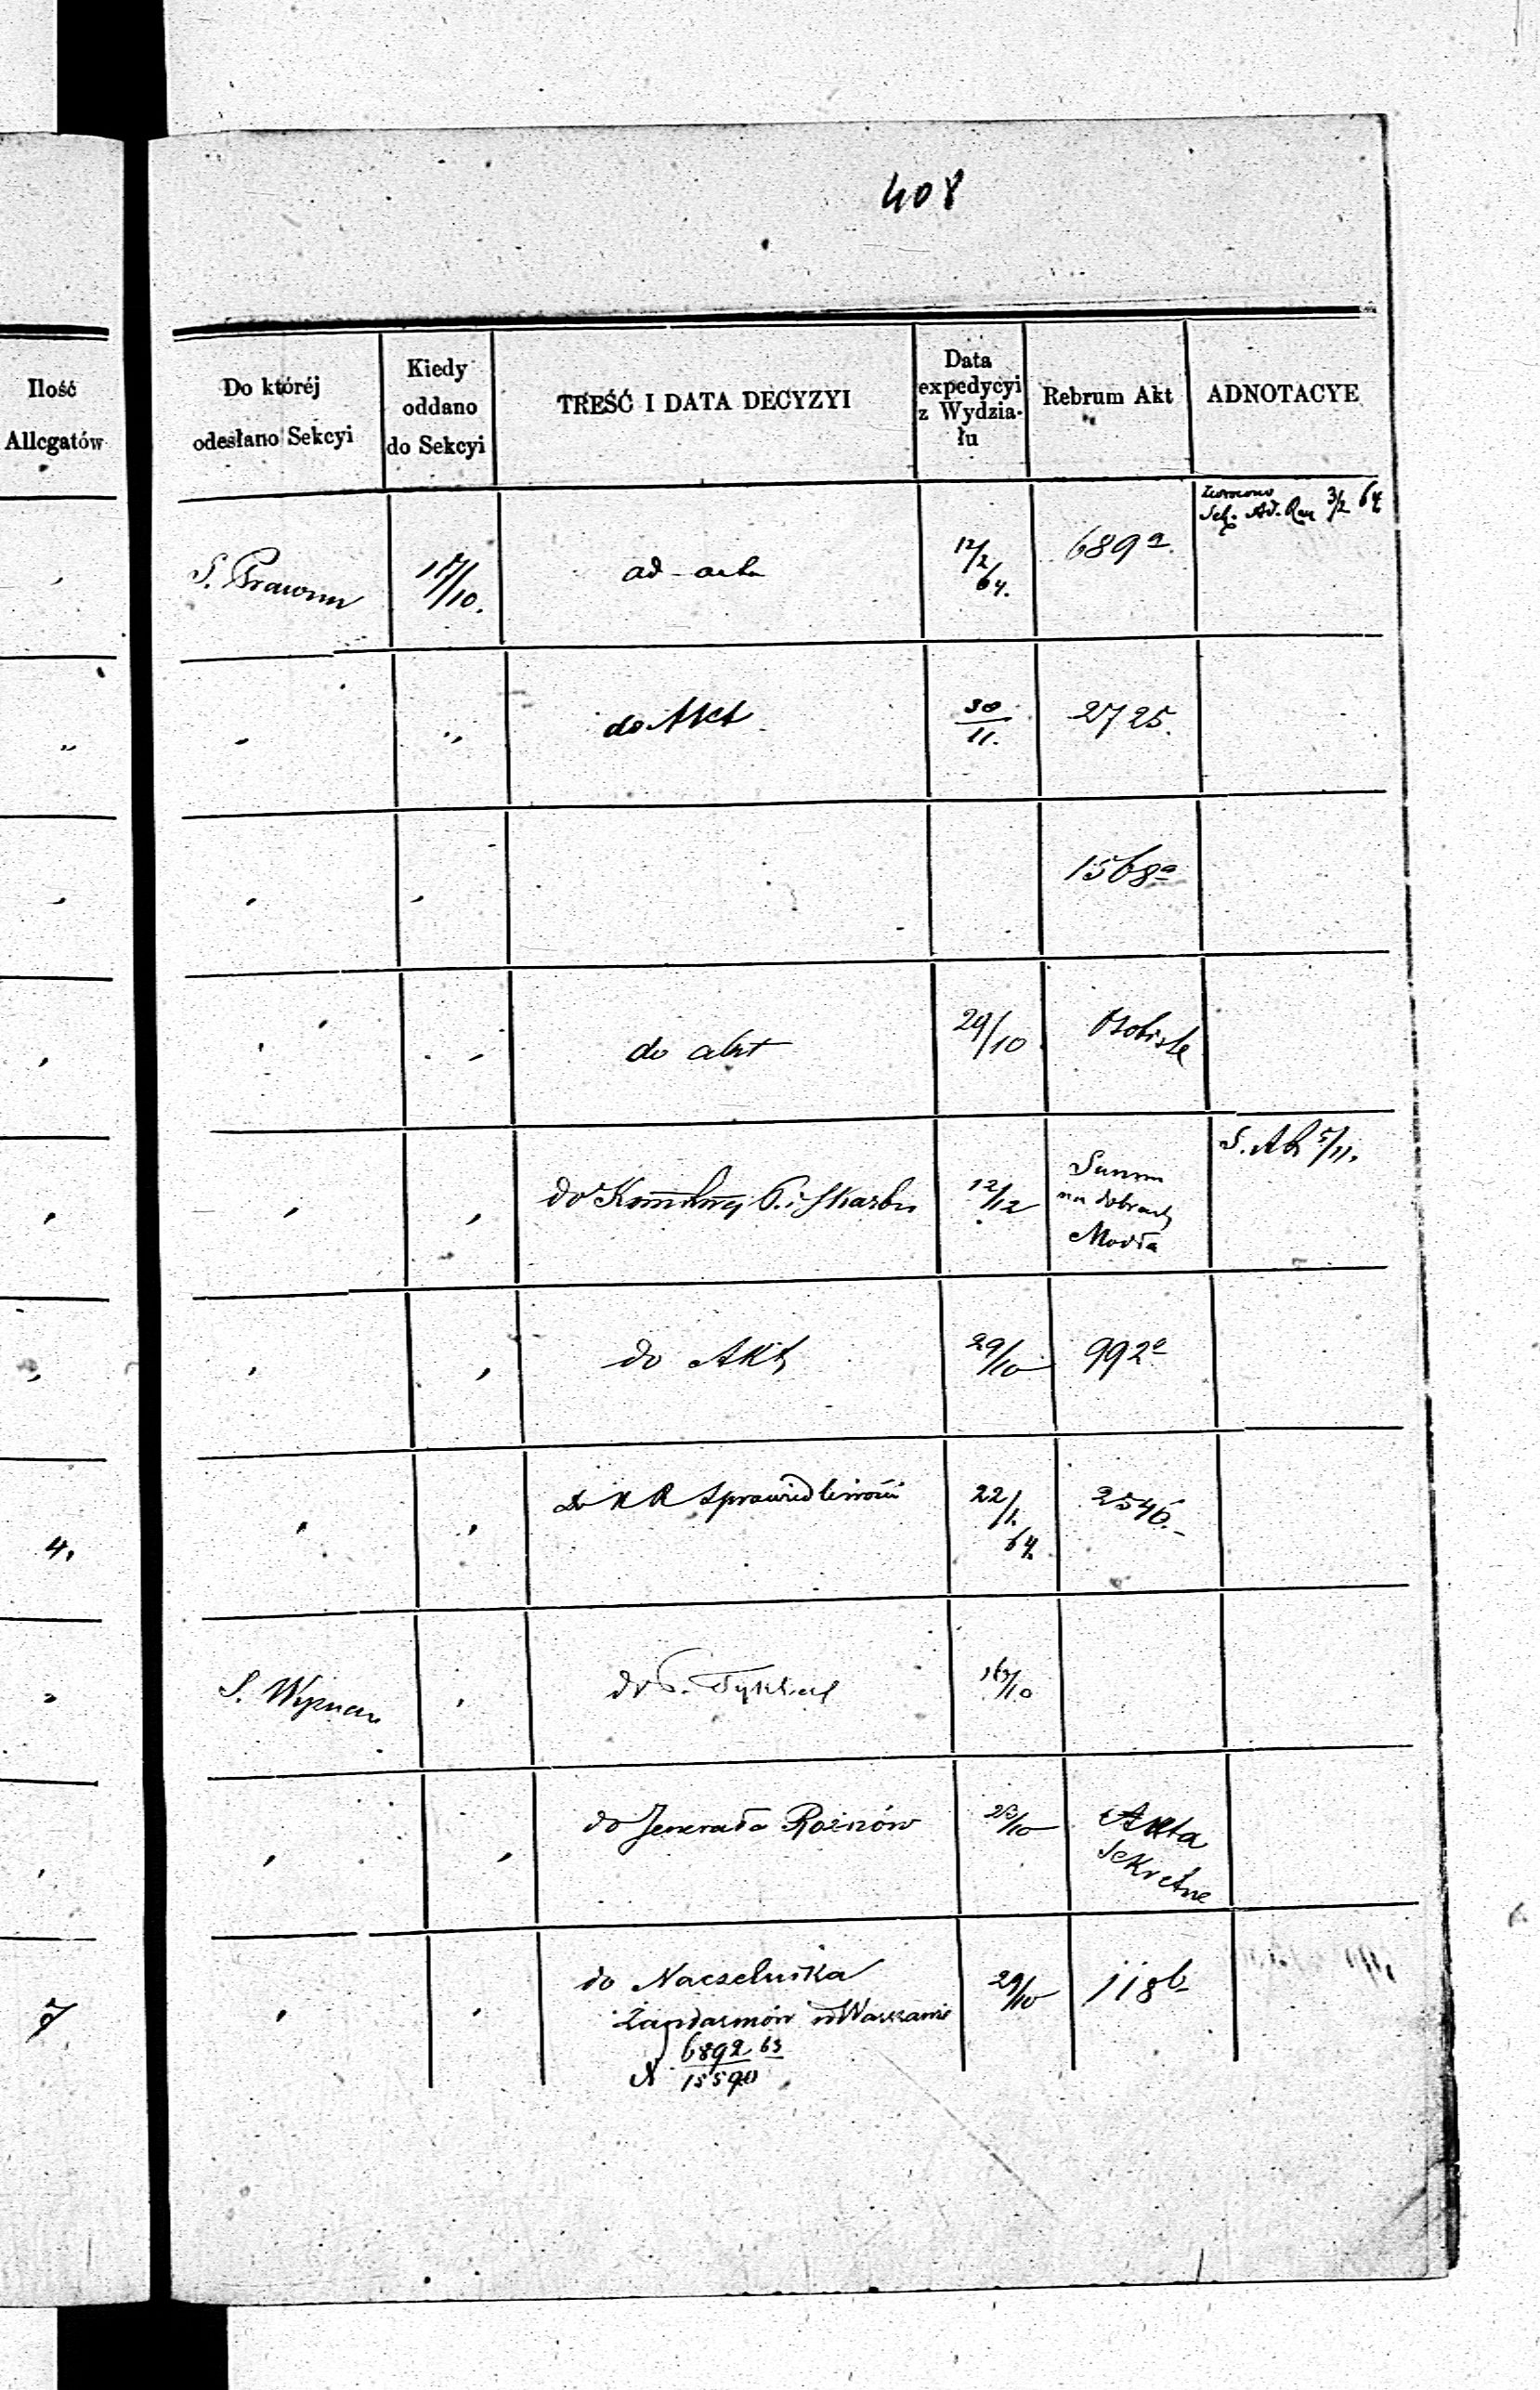 408
Ilość
Allegatów
Do któréj
odesłano Sekcyi
Kiedy
oddano
do Sekcyi
TREŚĆ I DATA DECYZYI
Data
expedycyi
z Wydzia-
łu
Rebrum Akt
ADNOTACYE
S. Prawna
17/10.
ad acta
12/2
64.
689a.
3/2 64
" do Akt
30/11.
2725.
1568a
do akt
29/10
Osobiste
do Kommissyi P. i Skarbu
12/12
Summ
na dobrach
Modła
S. AR 5/11.
do Akt
29/10
992a
4.
do K R Sprawiedliwości
22/1.
64.
2546.-
S. Wyznań
do
16/10
do Jenerała Rożnów
23/10
Akta
Sekretne
7
do Naczelnika
Żandarmów w Warszawie
N 6892 63
15590
29/10
118b